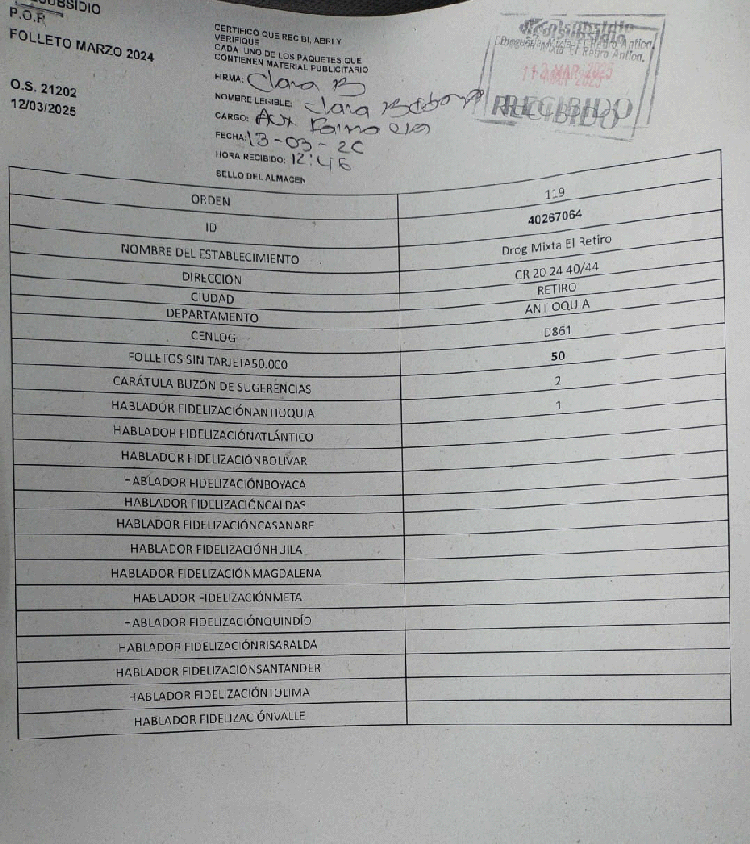 SUBSIDIO
P.O.P.
FOLLETO MARZO 2024
O.S. 21202
12/03/2025
CERTIFICO QUE RECIBI, ABRI Y
VERIFIQUE
CADA UNO DE LOS PAQUETES QUE
CONTIENEN MATERIAL PUBLICITARIO
FIRMA: Clara B
NOMBRE LEGIBLE: Clara
CARGO: Aux Farmacia
FECHA: 13-03-25
HORA RECIBIDO: 12:46
SELLO DEL ALMACEN
13 MAR 2025
RECIBIDO
ORDEN 119
ID 40267064
NOMBRE DEL ESTABLECIMIENTO Drog Mixta El Retiro
DIRECCION CR 20 24 40/44
CIUDAD RETIRO
DEPARTAMENTO ANTIOQUIA
CENLOG D861
FOLLETOS SIN TARJETA50.000 50
CARÁTULA BUZÓN DE SUGERENCIAS 2
HABLADOR FIDELIZACIÓNANTIOQUIA 1
HABLADOR FIDELIZACIÓNATLÁNTICO
HABLADOR FIDELIZACIÓNBOLÍVAR
HABLADOR FIDELIZACIÓNBOYACÁ
HABLADOR FIDELIZACIÓNCALDAS
HABLADOR FIDELIZACIÓNCASANARE
HABLADOR FIDELIZACIÓNHUILA
HABLADOR FIDELIZACIÓNMAGDALENA
HABLADOR FIDELIZACIÓNMETA
HABLADOR FIDELIZACIÓNQUINDÍO
HABLADOR FIDELIZACIÓNRISARALDA
HABLADOR FIDELIZACIÓNSANTANDER
HABLADOR FIDELIZACIÓNTOLIMA
HABLADOR FIDELIZACIÓNVALLE